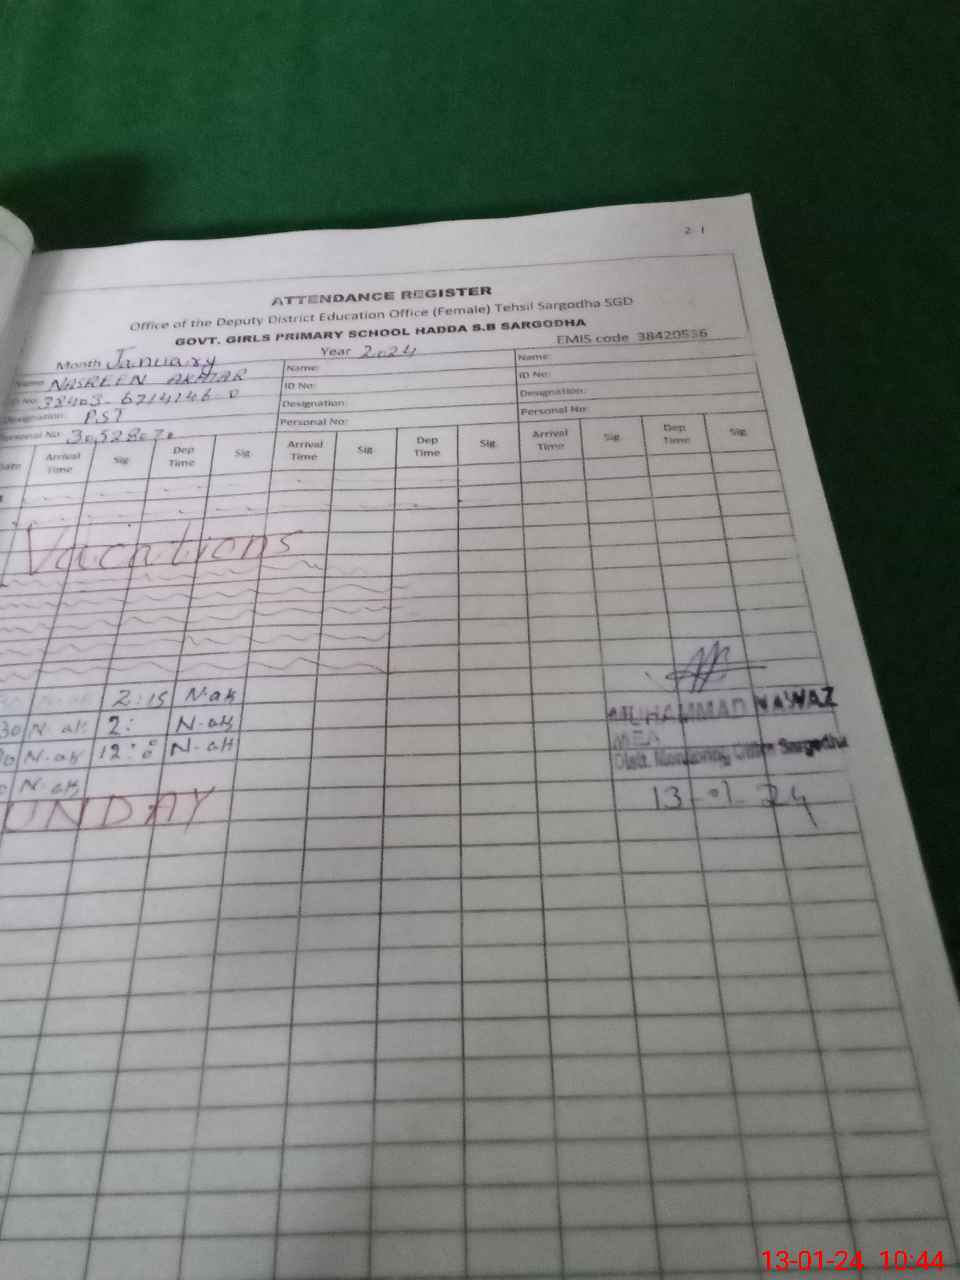 2 1
ATTENDANCE REGISTER
Office of the Deputy District Education Office (Female) Tehsil Sargodha SGD
GOVT. GIRLS PRIMARY SCHOOL HADDA S.B SARGODHA
EMIS code 38420556
Month January Year 2024
Name NASREEN AKHTAR Name: Name:
No: 38403-6214146-0 ID No: ID No:
Designation: PST Designation: Designation:
Personal No: 30528070 Personal No: Personal No:
Date Arrival Time Sig Dep Time Sig Arrival Time Sig Dep Time Sig Arrival Time Sig Dep Time Sig
Vacations
2:15 N.ak
30 N.ak 2: N.ak
N.ak 12:00 N.ak
N.ak
UNDAY
MUHAMMAD NAWAZ
MEA
Distt. Monitoring Officer Sargodha
13-01-24
13-01-24 10:44